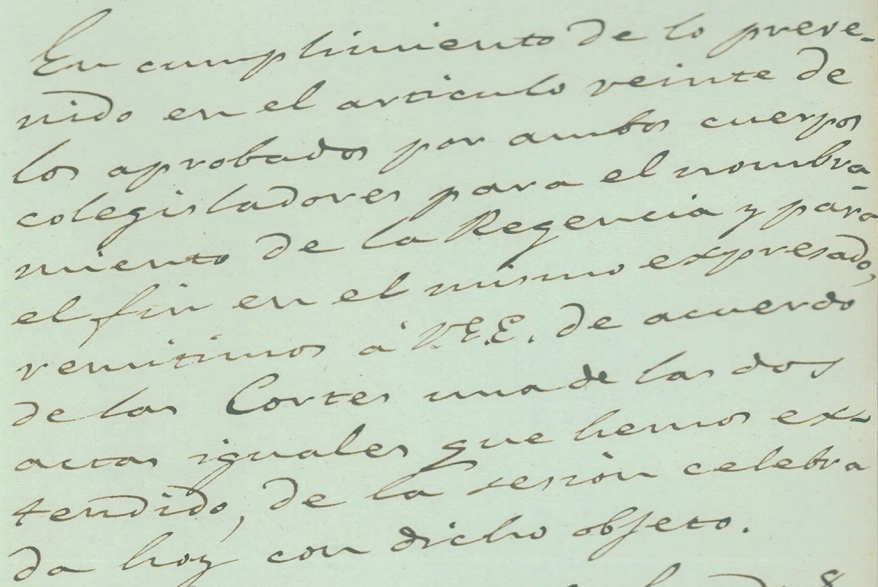 En cumplimiento de lo preve-
nido en el articulo veinte de
los aprobados por ambos cuerpos
colegisladores para el nombra-
miento de la Regencia y para
el fin en el mismo expresado,
remitimos á V.E.E. de acuerdo
de las Cortes una de las dos
actas iguales que hemos ex-
tendido, de la sesion celebra
da hoy con dicho objeto.